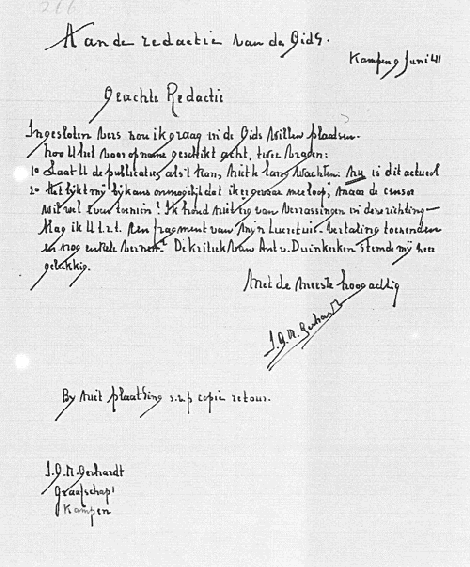 Aan de redactie van de Gids.
Kampen 9 Juni 41
Geachte Redactie
Ingesloten vers zou ik graag in de Gids willen plaatsen.
zoo U het voor opname geschikt acht, twee vragen:
1o Laat U de publicatie, als 't kan, niet te lang wachten. nu is dit actueel
2o Het lijkt mij bijkans onmogelijk dat ik er gevaar mee loop, maar de censor
wil wel even teemen! Ik houd niet erg van verrassingen in deze richting
Mag ik U t.z.t. een fragment van mijn Lucretius-vertaling toezenden
en nog enkele verzen? De kritiek van Ant. v. Duinkerken stemd mij zeer
gelukkig.
Met de meeste hoogachting
J.G.M. Gerhardt
By niet plaatsing s.v.p copie retour.
J.G.M. Gerhardt
Graafschap
Kampen